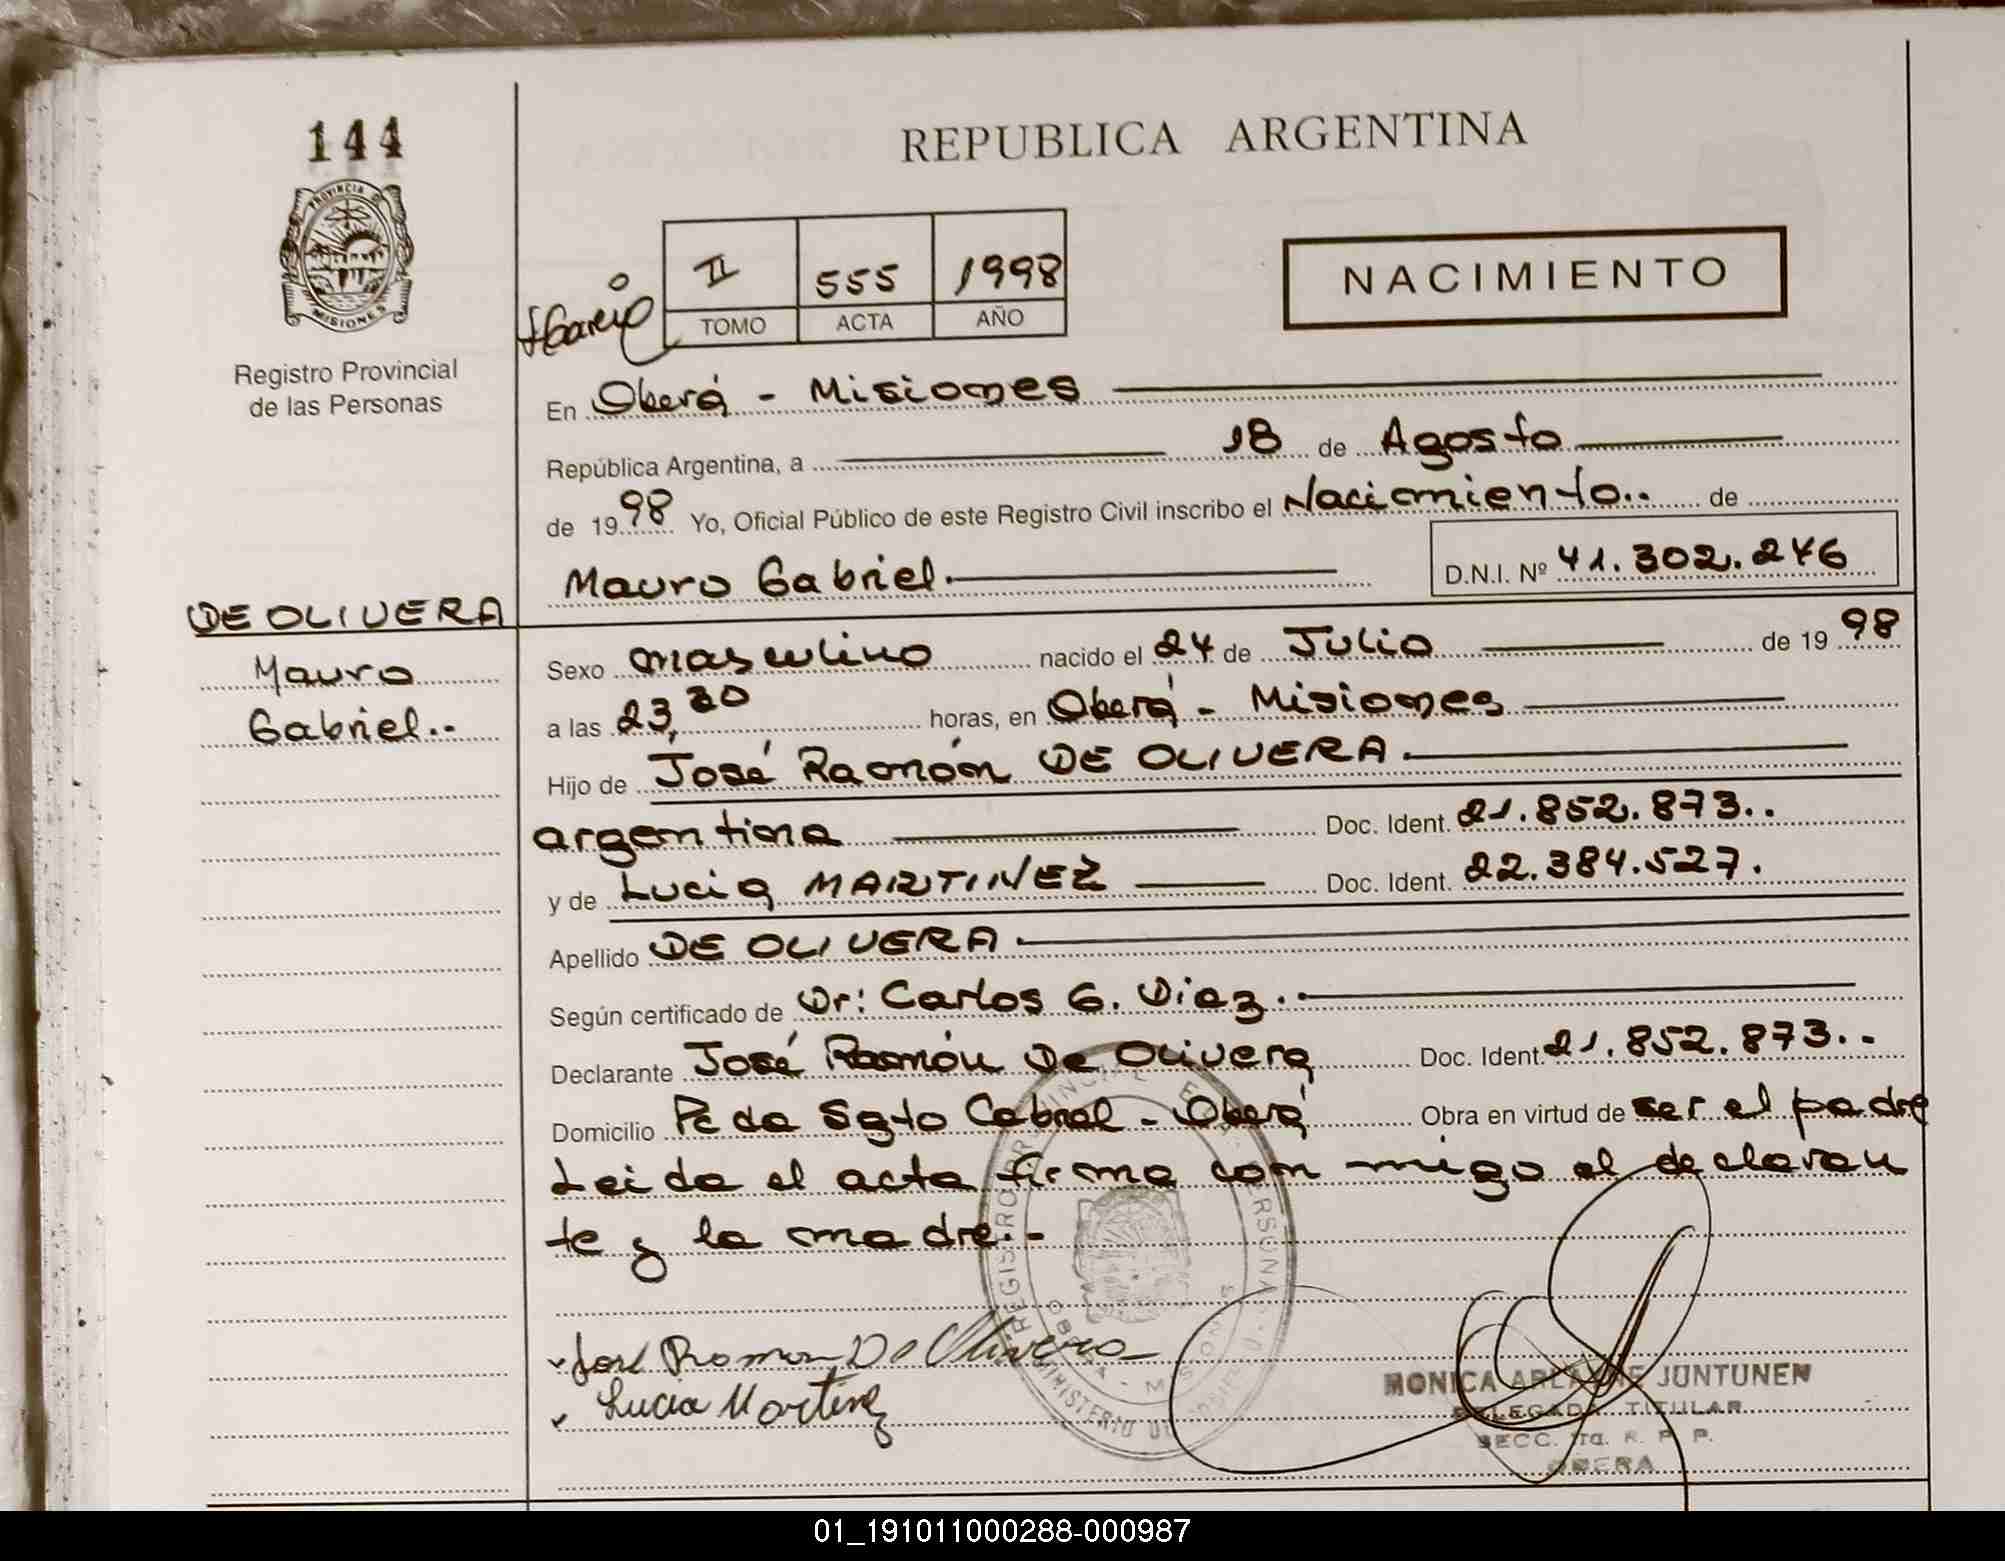 144
REPUBLICA ARGENTINA
PROVINCIA DE
MISIONES
Registro Provincial
de las Personas
II 555 1998
TOMO ACTA AÑO
NACIMIENTO
En Oberá - Misiones
República Argentina, a 18 de Agosto
de 1998 Yo, Oficial Público de este Registro Civil inscribo el Nacimiento.. de
Mauro Gabriel. D.N.I. Nº 41.302.246
DE OLIVERA
Mauro
Gabriel..
Sexo masculino nacido el 24 de Julio de 1998
a las 23,30 horas, en Oberá - Misiones
Hijo de José Ramón DE OLIVERA.
argentina Doc. Ident. 21.852.873..
y de Lucia MARTINEZ Doc. Ident. 22.384.527.
Apellido DE OLIVERA.
Según certificado de Dr: Carlos G. Diaz.
Declarante José Ramón De Olivera Doc. Ident. 21.852.873..
Domicilio Pc da Sgto Cabral - Oberá Obra en virtud de ser el padre
Leida el acta firma con migo el declaran
te y la madre.-
José Ramon De Olivera
Lucia Martinez
MONICA ARLAINE JUNTUNEN
DELEGADA TITULAR
SECC. 1ra. R. P. P.
OBERA
01_191011000288-000987